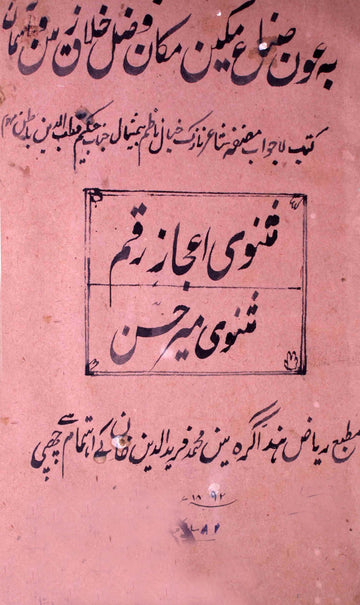 بہ عون صناع مکین مکان و فضل خلاق زمین و آسمان
کتاب لاجواب مصنفہ شاعر نازک خیال ناظم بیمثال جناب حکیم قطب الدین باطن مرحوم
مثنوی اعجاز رقم
مثنوی میر حسن
مطبع ریاض ہند آگرہ مین محمد فرید الدین خان کے اہتمام سے چھپی
۱۸۹۲